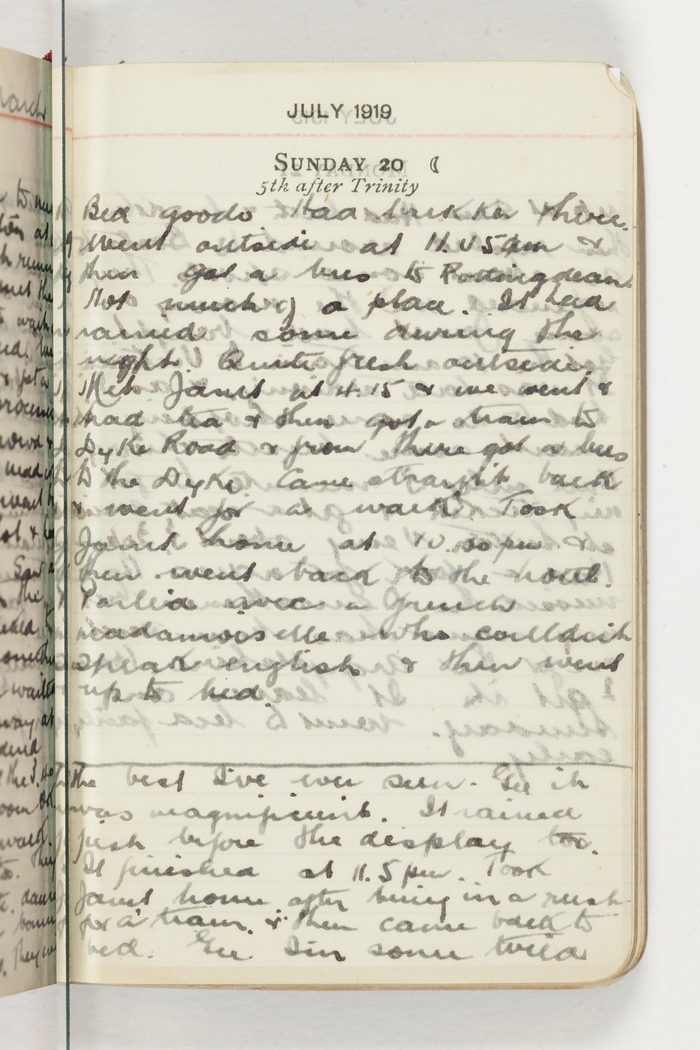 JULY 1919
SUNDAY 20
5th after Trinity
Bed goodo Had brekker there.
Went outside at 11.45am &
then got a bus to Rottingdean
Not much of a place. It had
rained some during the
night. Quite fresh outside.
Met Janet at 4.15 & we went &
had tea & then got a tram to
Dyke Road & from there got a bus
to the Dyke. Came straight back
& went for a walk. Took
Janet home at 10.30pm &
then went back to the hotel.
Parlied avec a French
madamoiselle who couldnt
speak english & then went
up to bed.
The best I've ever seen. Gee it
was magnificent. It rained
just before the display too.
It finished at 11.5pm. Took
Janet home after being in a rush
for a tram & then came back to
bed. Gee I'm some tired